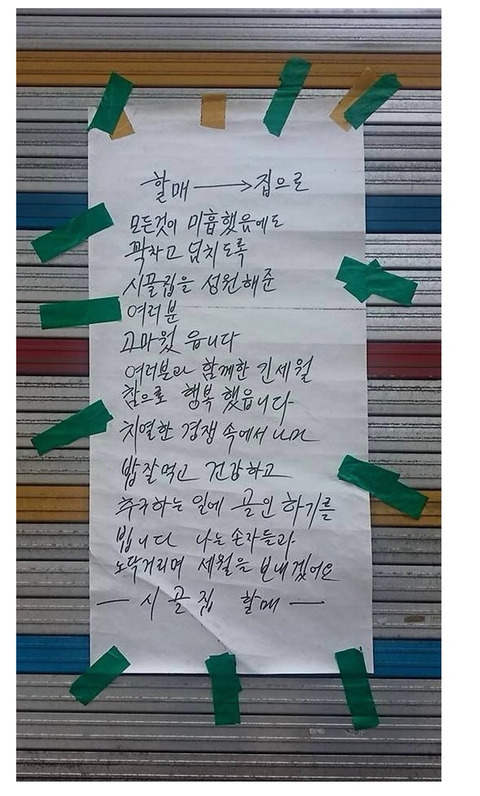 할매 → 집으로
모든것이 미흡했음에도
꽉차고 넘치도록
시골집을 성원해준
여러분
고마웠 읍니다
여러분과 함께한 긴세월
참으로 행복 했읍니다
치열한 경쟁 속에서
밥잘먹고 건강하고
추구하는 일에 골인 하기를
빕니다 나는 손자들과
노닥거리며 세월을 보내겠어요
— 시골집 할매 —